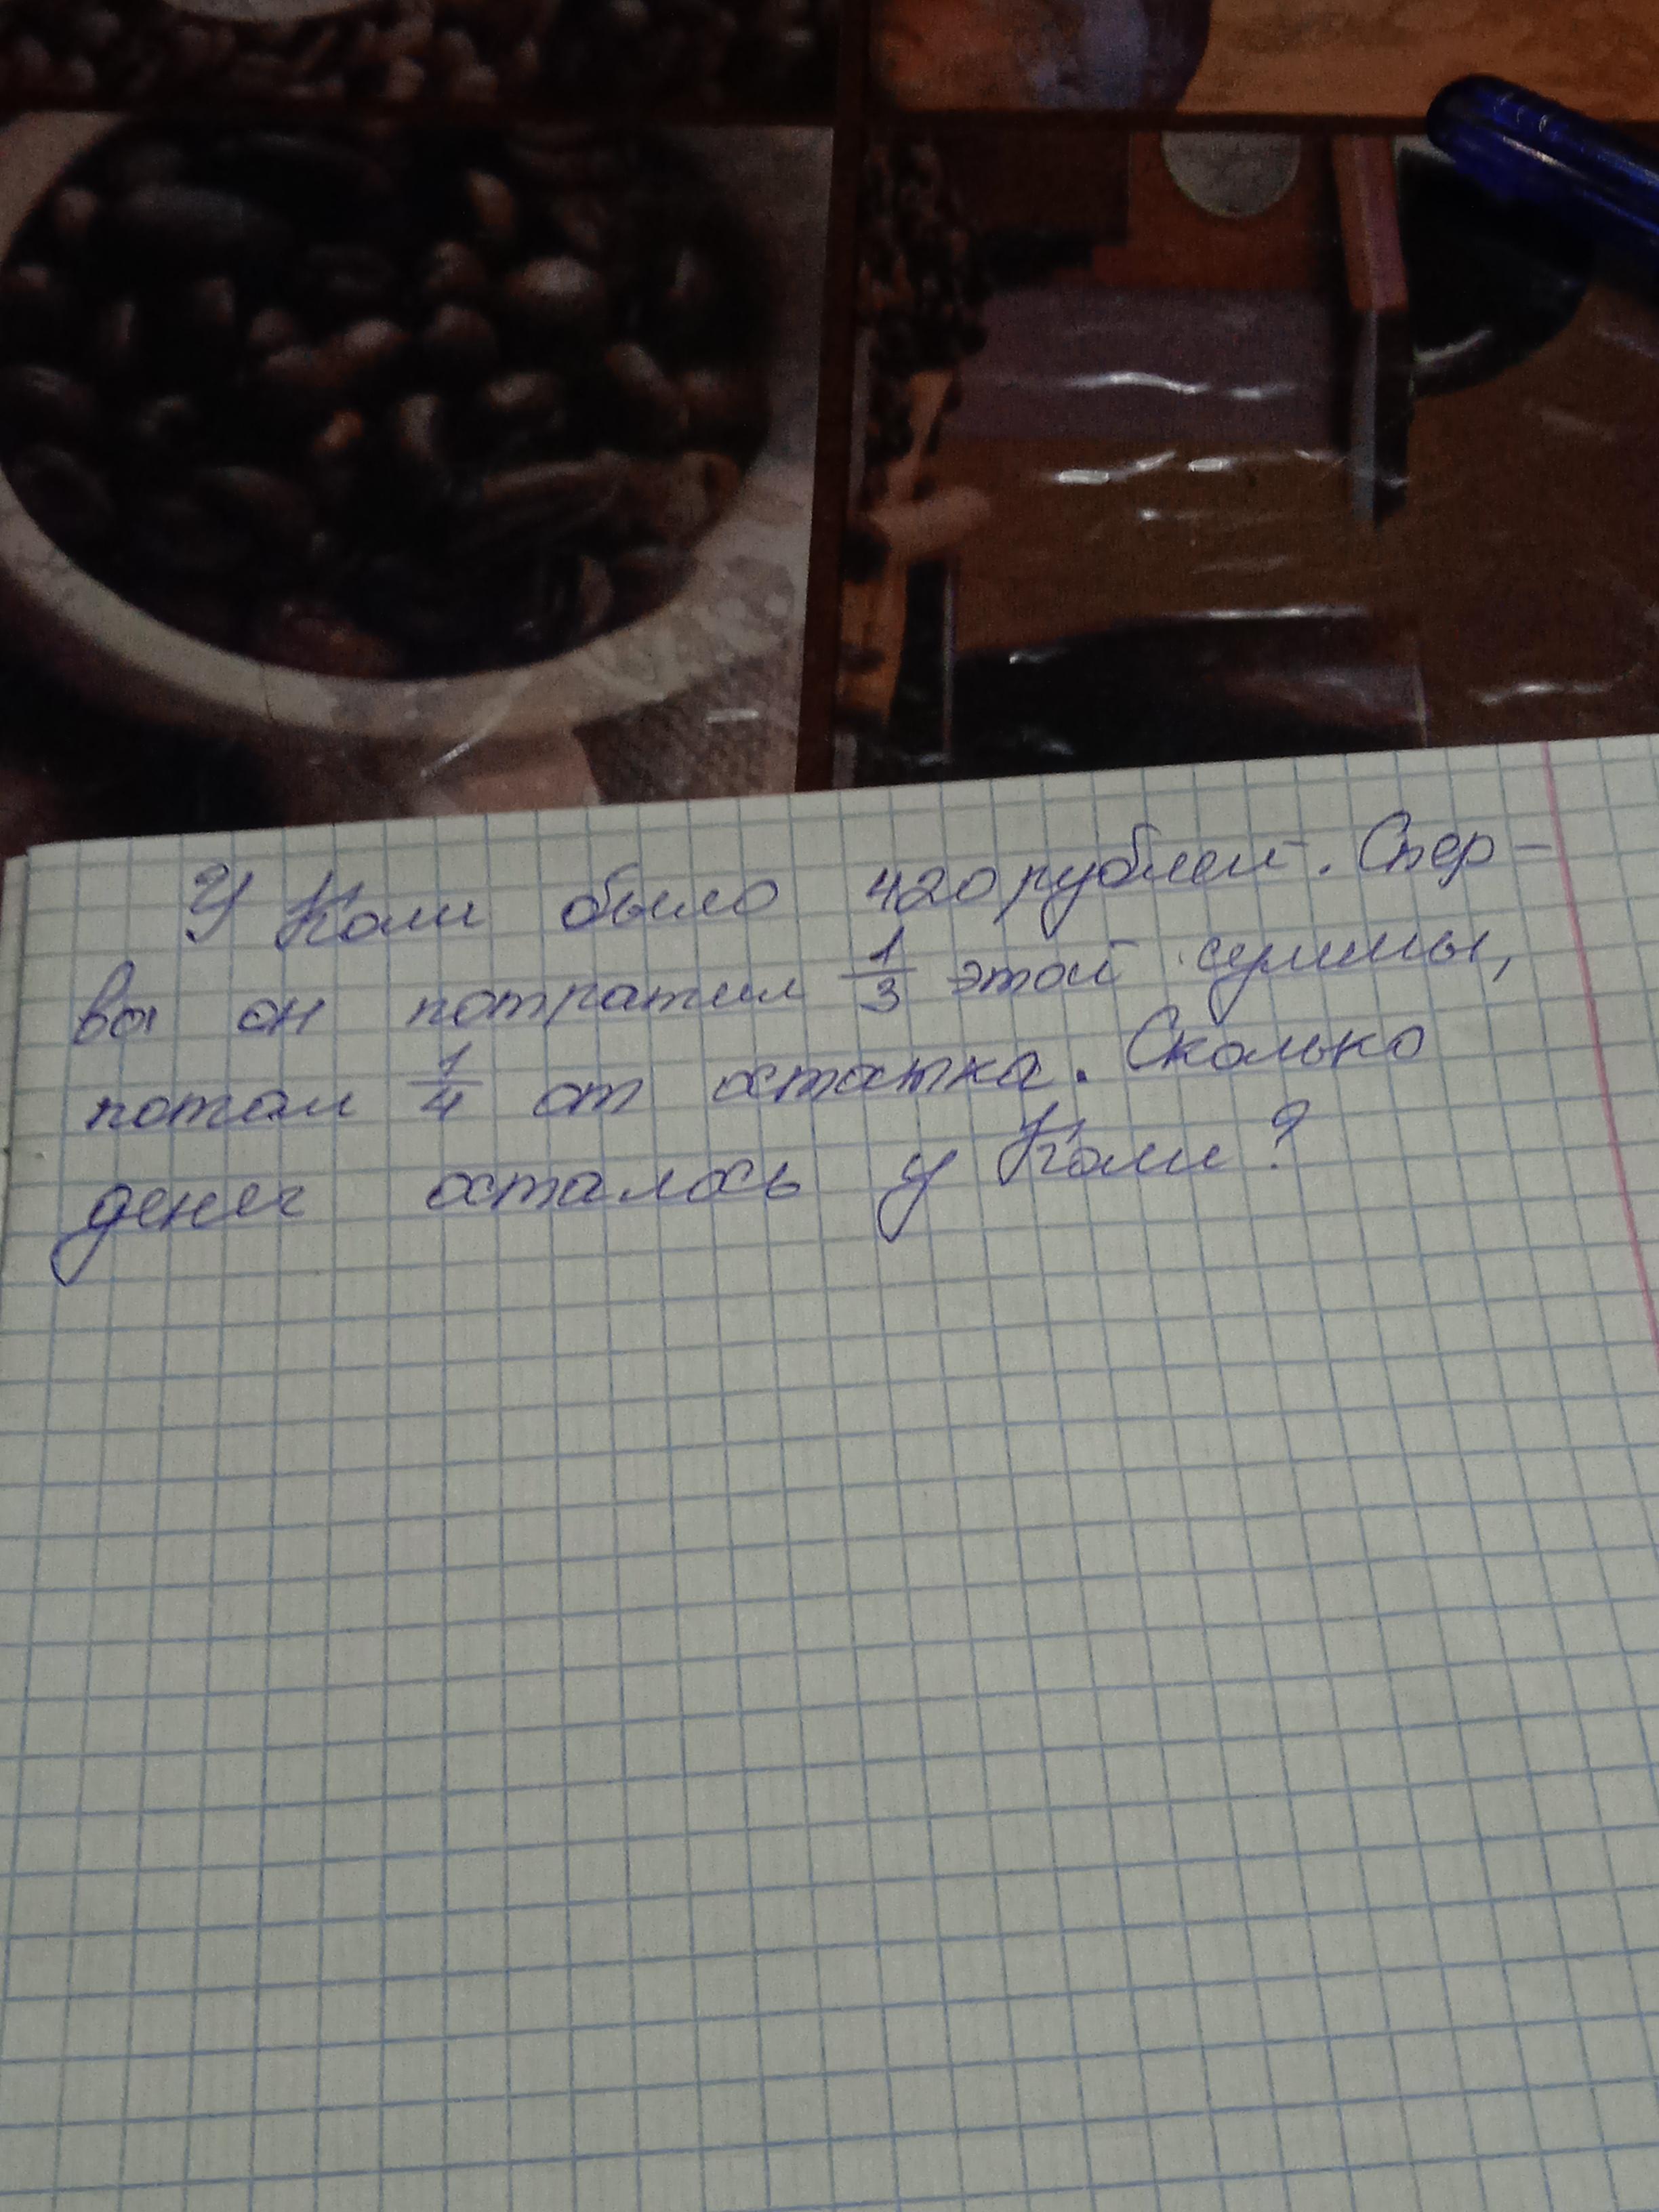 У Коли было 420 рублей. Спер-
ва он потратил 1/3 этой суммы,
потом 1/4 от остатка. Сколько
денег осталось у Коли?